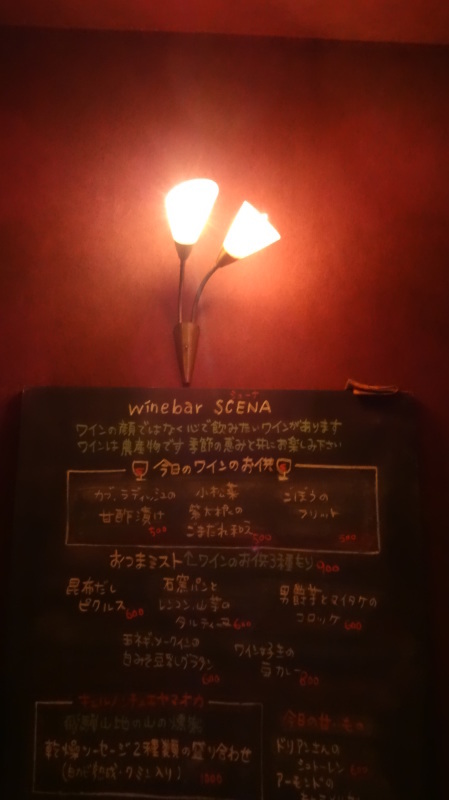 シェーナ
winebar SCENA
ワインの顔ではなく心で飲みたいワインがあります
ワインは農産物です 季節の恵みと共にお楽しみ下さい
今日のワインのお供
カブ、ラディッシュの
甘酢漬け
500
小松菜
ごまだれ和え
500
ごぼうの
フリット
500
おつまミスト
ワインのお供3種もり 900
昆布だし
ピクルス 600
石窯パンと
レンコン、山芋の
タルティーヌ 600
男爵芋とマイタケの
コロッケ 600
玉ネギ、メークインの
白みそ豆乳グラタン
600
ワイン好きの
カレー 800
飛騨山地の山の
乾燥ソーセージ2種類の盛り合わせ
(白カビ熟成・クミン入り)
1000
ドリアンさんの
シュトーレン 600
アーモンドの